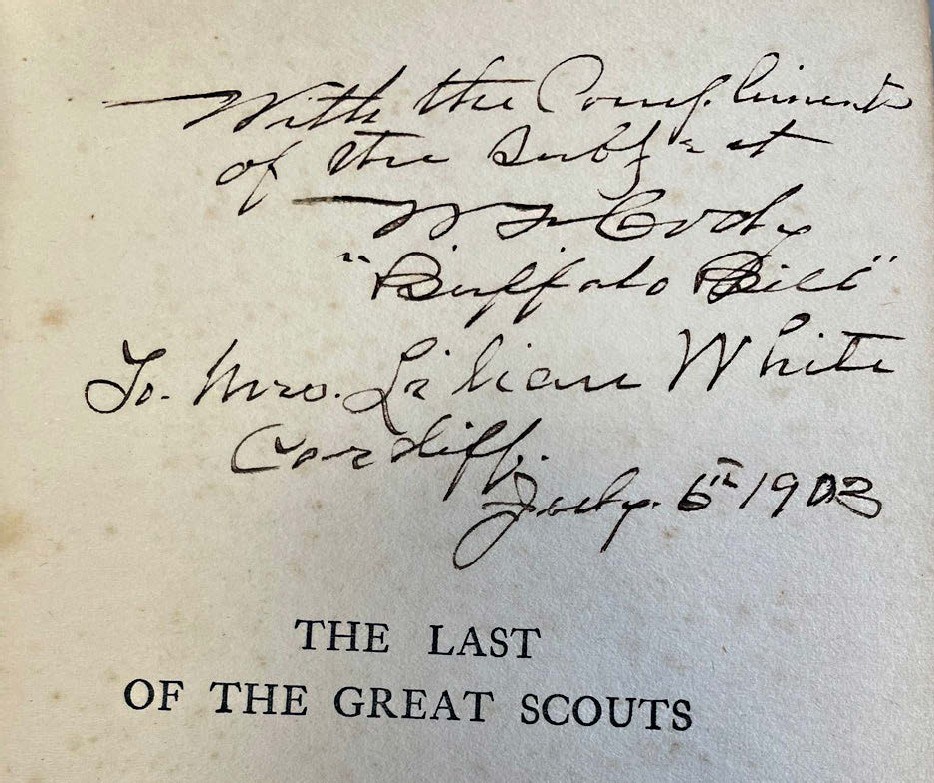 With the Compliments
of the subj=ect
W F Cody
"Buffalo Bill"
To. Mrs. Lilian White
Cardiff.
July. 6th 1903
THE LAST
OF THE GREAT SCOUTS